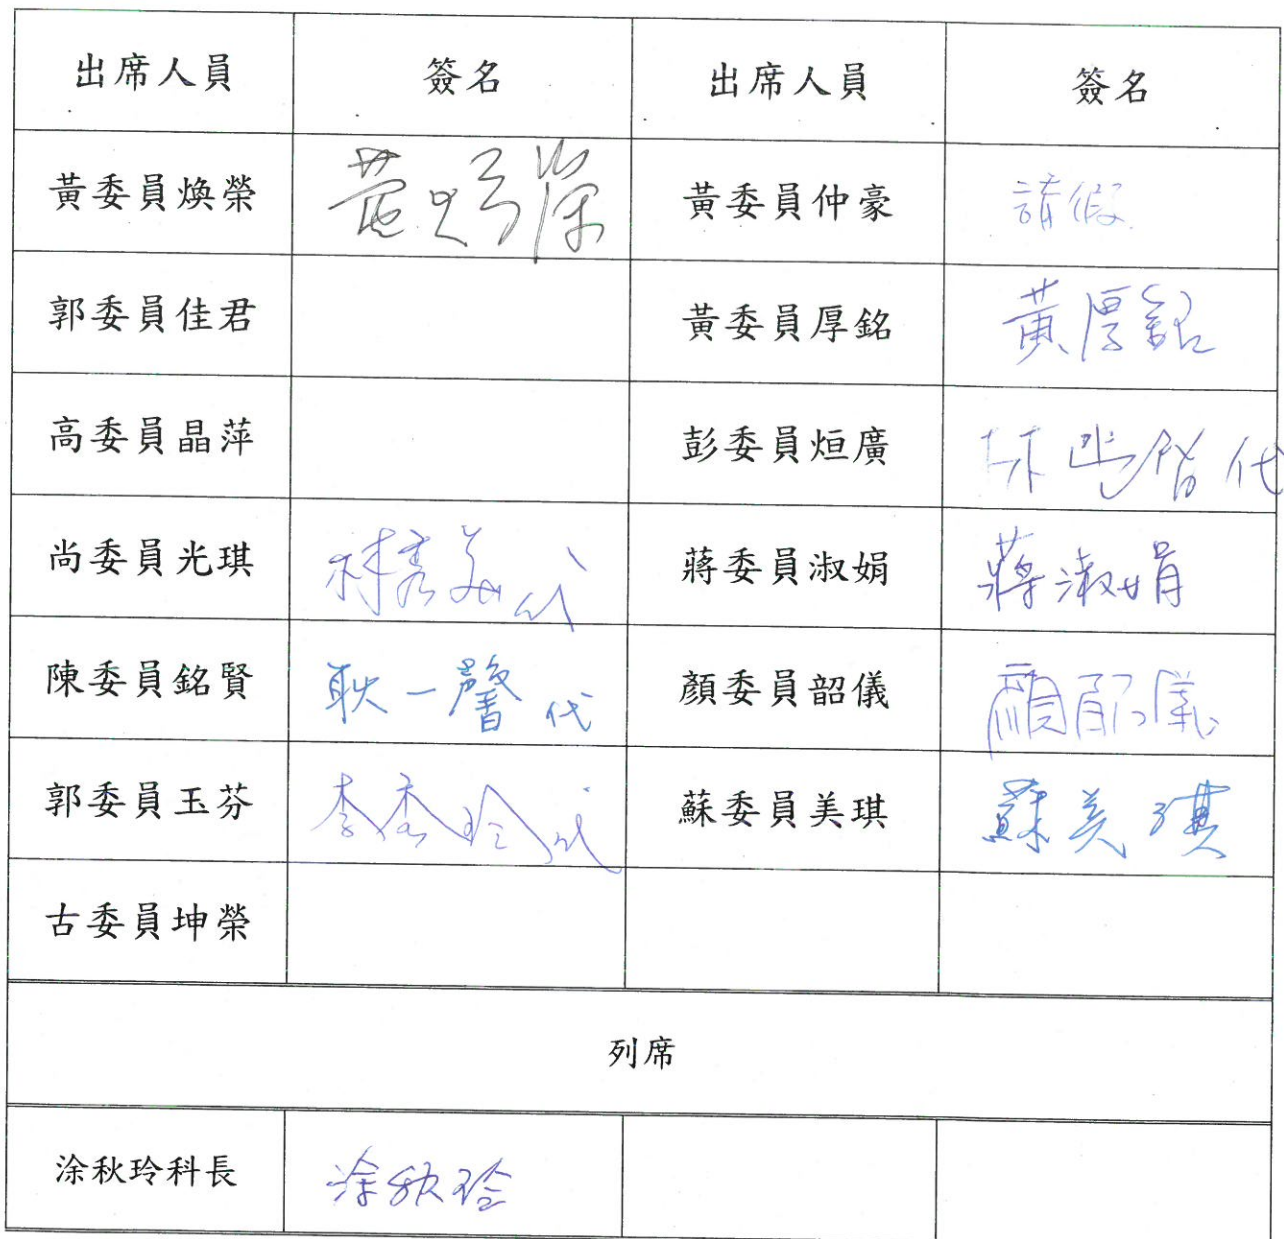 出席人員 簽名 出席人員 簽名
黃委員煥榮 黃煥榮 黃委員仲豪 請假
郭委員佳君 黃委員厚銘 黃厚銘
高委員晶萍 彭委員烜廣 代
尚委員光琪 林秀美代 蔣委員淑娟 蔣淑娟
陳委員銘賢 耿一馨代 顏委員韶儀 顏韶儀
郭委員玉芬 李秀玲代 蘇委員美琪 蘇美琪
古委員坤榮
列席
涂秋玲科長 涂秋玲